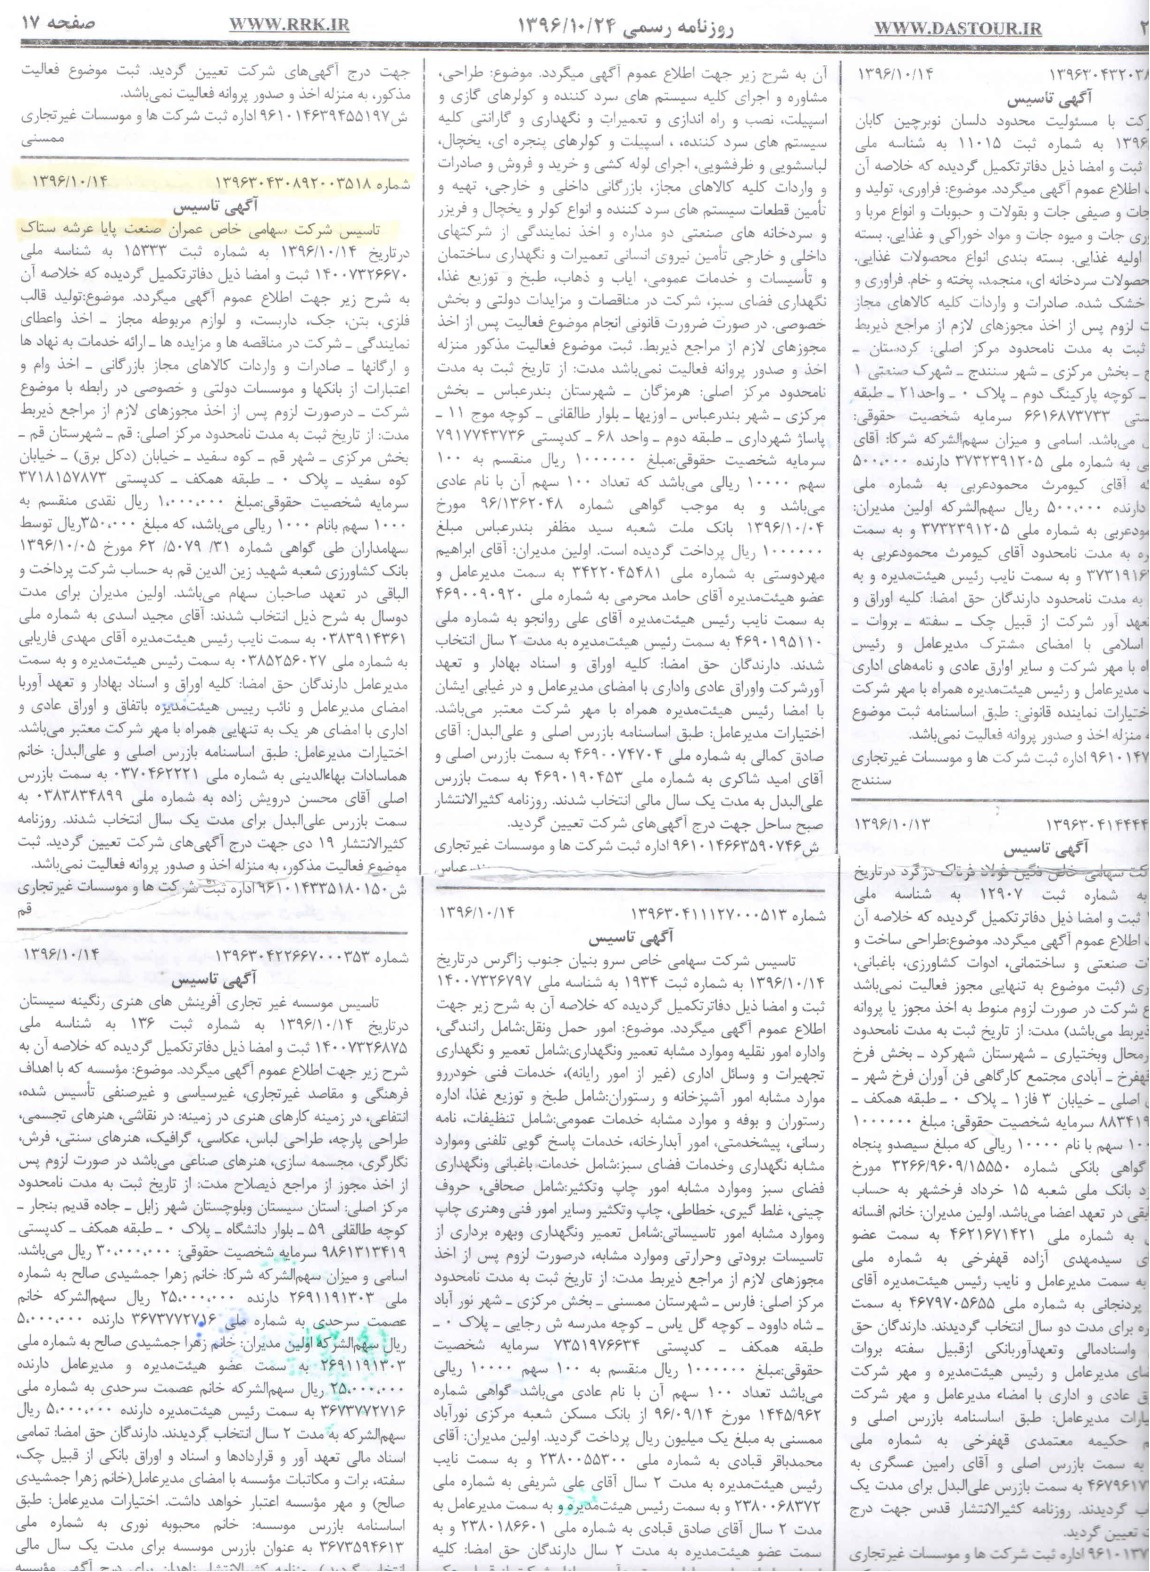 WWW.DASTOUR.IR
روزنامه رسمی ۱۳۹۶/۱۰/۲۴
WWW.RRK.IR
صفحه ۱۷
۱۳۹۶/۱۰/۱۴
آگهی تاسیس
با مسئولیت محدود دلسان نوبرچین کابان
به شماره ثبت ۱۱۰۱۵ به شناسه ملی
ثبت و امضا ذیل دفاترتکمیل گردیده که خلاصه آن
اطلاع عموم آگهی میگردد. موضوع: فراوری، تولید و
و صیفی جات و بقولات و حبوبات و انواع مربا و
جات و میوه جات و مواد خوراکی و غذایی. بسته
اولیه غذایی. بسته بندی انواع محصولات غذایی.
سردخانه ای، منجمد، پخته و خام. فراوری و
خشک شده. صادرات و واردات کلیه کالاهای مجاز
لزوم پس از اخذ مجوزهای لازم از مراجع ذیربط
ثبت به مدت نامحدود مرکز اصلی: کردستان ـ
ـ بخش مرکزی ـ شهر سنندج ـ شهرک صنعتی ۱
ـ کوچه پارکینگ دوم ـ پلاک ۰ ـ واحد۲۱ ـ طبقه
۶۶۱۶۸۷۳۷۳۳ سرمایه شخصیت حقوقی:
می‌باشد. اسامی و میزان سهم‌الشرکه شرکا: آقای
به شماره ملی ۳۷۳۲۳۹۱۲۰۵ دارنده ۵۰۰,۰۰۰
آقای کیومرث محمودعربی به شماره ملی
دارنده ۵۰۰,۰۰۰ ریال سهم‌الشرکه اولین مدیران:
به شماره ملی ۳۷۳۲۳۹۱۲۰۵ و به سمت
به مدت نامحدود آقای کیومرث محمودعربی به
و به سمت نایب رئیس هیئت‌مدیره و به
به مدت نامحدود دارندگان حق امضا: کلیه اوراق و
آور شرکت از قبیل چک ـ سفته ـ بروات ـ
اسلامی با امضای مشترک مدیرعامل و رئیس
با مهر شرکت و سایر اوارق عادی و نامه‌های اداری
مدیرعامل و رئیس هیئت‌مدیره همراه با مهر شرکت
نماینده قانونی: طبق اساسنامه ثبت موضوع
منزله اخذ و صدور پروانه فعالیت نمی‌باشد.
اداره ثبت شرکت ها و موسسات غیرتجاری
سنندج
۱۳۹۶/۱۰/۱۳
آگهی تاسیس
سهامی خاص نگین فولاد فرتاک دزگرد درتاریخ
به شماره ثبت ۱۲۹۰۷ به شناسه ملی
ثبت و امضا ذیل دفاترتکمیل گردیده که خلاصه آن
اطلاع عموم آگهی میگردد. موضوع:طراحی ساخت و
صنعتی و ساختمانی، ادوات کشاورزی، باغبانی،
(ثبت موضوع به تنهایی مجوز فعالیت نمی‌باشد
شرکت در صورت لزوم منوط به اخذ مجوز یا پروانه
ذیربط می‌باشد) مدت: از تاریخ ثبت به مدت نامحدود
وبختیاری ـ شهرستان شهرکرد ـ بخش فرخ
ـ آبادی مجتمع کارگاهی فن آوران فرخ شهر ـ
اصلی ـ خیابان ۳ فاز۱ ـ پلاک ۰ ـ طبقه همکف ـ
سرمایه شخصیت حقوقی: مبلغ ۱۰۰۰۰۰۰
سهم با نام ۱۰۰۰۰ ریالی که مبلغ سیصدو پنجاه
گواهی بانکی شماره ۳۲۶۶/۹۶۰۹/۱۵۵۵۰ مورخ
بانک ملی شعبه ۱۵ خرداد فرخشهر به حساب
در تعهد اعضا می‌باشد. اولین مدیران: خانم افسانه
به شماره ملی ۴۶۲۱۶۷۱۴۲۱ به سمت عضو
سیدمهدی آزاده قهفرخی به شماره ملی
به سمت مدیرعامل و نایب رئیس هیئت‌مدیره آقای
پردنجانی به شماره ملی ۴۶۷۹۷۰۵۶۵۵ به سمت
برای مدت دو سال انتخاب گردیدند. دارندگان حق
واسنادمالی وتعهدآوربانکی ازقبیل سفته بروات
مدیرعامل و رئیس هیئت‌مدیره و مهر شرکت
عادی و اداری با امضاء مدیرعامل و مهر شرکت
مدیرعامل: طبق اساسنامه بازرس اصلی و
حکیمه معتمدی قهفرخی به شماره ملی
به سمت بازرس اصلی و آقای رامین عسگری به
به سمت بازرس علی‌البدل برای مدت یک
گردیدند. روزنامه کثیرالانتشار قدس جهت درج
تعیین گردید.
اداره ثبت شرکت ها و موسسات غیرتجاری
آن به شرح زیر جهت اطلاع عموم آگهی میگردد. موضوع: طراحی،
مشاوره و اجرای کلیه سیستم های سرد کننده و کولرهای گازی و
اسپیلت، نصب و راه اندازی و تعمیرات و نگهداری و گارانتی کلیه
سیستم های سرد کننده، ، اسپیلت و کولرهای پنجره ای، یخچال،
لباسشویی و ظرفشویی، اجرای لوله کشی و خرید و فروش و صادرات
و واردات کلیه کالاهای مجاز، بازرگانی داخلی و خارجی، تهیه و
تأمین قطعات سیستم های سرد کننده و انواع کولر و یخچال و فریزر
و سردخانه های صنعتی دو مداره و اخذ نمایندگی از شرکتهای
داخلی و خارجی تأمین نیروی انسانی تعمیرات و نگهداری ساختمان
و تأسیسات و خدمات عمومی، ایاب و ذهاب، طبخ و توزیع غذا،
نگهداری فضای سبز، شرکت در مناقصات و مزایدات دولتی و بخش
خصوصی. در صورت ضرورت قانونی انجام موضوع فعالیت پس از اخذ
مجوزهای لازم از مراجع ذیربط. ثبت موضوع فعالیت مذکور منزله
اخذ و صدور پروانه فعالیت نمی‌باشد مدت: از تاریخ ثبت به مدت
نامحدود مرکز اصلی: هرمزگان ـ شهرستان بندرعباس ـ بخش
مرکزی ـ شهر بندرعباس ـ اوزیها ـ بلوار طالقانی ـ کوچه موج ۱۱ ـ
پاساژ شهرداری ـ طبقه دوم ـ واحد ۶۸ ـ کدپستی ۷۹۱۷۷۴۳۷۳۶
سرمایه شخصیت حقوقی:مبلغ ۱۰۰۰۰۰۰ ریال منقسم به ۱۰۰
سهم ۱۰۰۰۰ ریالی می‌باشد که تعداد ۱۰۰ سهم آن با نام عادی
می‌باشد و به موجب گواهی شماره ۹۶/۱۳۶۲۰۴۸ مورخ
۱۳۹۶/۱۰/۰۴ بانک ملت شعبه سید مظفر بندرعباس مبلغ
۱۰۰۰۰۰۰ ریال پرداخت گردیده است. اولین مدیران: آقای ابراهیم
مهردوستی به شماره ملی ۳۴۲۲۰۴۵۴۸۱ به سمت مدیرعامل و
عضو هیئت‌مدیره آقای حامد محرمی به شماره ملی ۴۶۹۰۰۹۰۹۲۰
به سمت نایب رئیس هیئت‌مدیره آقای علی روانجو به شماره ملی
۴۶۹۰۱۹۵۱۱۰ به سمت رئیس هیئت‌مدیره به مدت ۲ سال انتخاب
شدند. دارندگان حق امضا: کلیه اوراق و اسناد بهادار و تعهد
آورشرکت واوراق عادی واداری با امضای مدیرعامل و در غیابی ایشان
با امضا رئیس هیئت‌مدیره همراه با مهر شرکت معتبر می‌باشد.
اختیارات مدیرعامل: طبق اساسنامه بازرس اصلی و علی‌البدل: آقای
صادق کمالی به شماره ملی ۴۶۹۰۰۷۴۷۰۴ به سمت بازرس اصلی و
آقای امید شاکری به شماره ملی ۴۶۹۰۱۹۰۴۵۳ به سمت بازرس
علی‌البدل به مدت یک سال مالی انتخاب شدند. روزنامه کثیرالانتشار
صبح ساحل جهت درج آگهی‌های شرکت تعیین گردید.
ش۹۶۱۰۱۴۶۶۳۵۹۰۷۴۶ اداره ثبت شرکت ها و موسسات غیرتجاری
شماره ۱۳۹۶۳۰۴۱۱۱۲۷۰۰۰۵۱۳ ۱۳۹۶/۱۰/۱۴
آگهی تاسیس
تاسیس شرکت سهامی خاص سرو بنیان جنوب زاگرس درتاریخ
۱۳۹۶/۱۰/۱۴ به شماره ثبت ۱۹۳۴ به شناسه ملی ۱۴۰۰۷۳۲۶۷۹۷
ثبت و امضا ذیل دفاترتکمیل گردیده که خلاصه آن به شرح زیر جهت
اطلاع عموم آگهی میگردد. موضوع: امور حمل ونقل:شامل رانندگی،
واداره امور نقلیه وموارد مشابه تعمیر ونگهداری:شامل تعمیر و نگهداری
تجهیزات و وسائل اداری (غیر از امور رایانه)، خدمات فنی خودررو
موارد مشابه امور آشپزخانه و رستوران:شامل طبخ و توزیع غذا، اداره
رستوران و بوفه و موارد مشابه خدمات عمومی:شامل تنظیفات، نامه
رسانی، پیشخدمتی، امور آبدارخانه، خدمات پاسخ گویی تلفنی وموارد
مشابه نگهداری وخدمات فضای سبز:شامل خدمات باغبانی ونگهداری
فضای سبز وموارد مشابه امور چاپ وتکثیر:شامل صحافی، حروف
چینی، غلط گیری، خطاطی، چاپ وتکثیر وسایر امور فنی وهنری چاپ
وموارد مشابه امور تاسیساتی:شامل تعمیر ونگهداری وبهره برداری از
تاسیسات برودتی وحرارتی وموارد مشابه، درصورت لزوم پس از اخذ
مجوزهای لازم از مراجع ذیربط مدت: از تاریخ ثبت به مدت نامحدود
مرکز اصلی: فارس ـ شهرستان ممسنی ـ بخش مرکزی ـ شهر نور آباد
ـ شاه داوود ـ کوچه گل یاس ـ کوچه مدرسه ش رجایی ـ پلاک ۰ ـ
طبقه همکف ـ کدپستی ۷۳۵۱۹۷۶۶۳۴ سرمایه شخصیت
حقوقی:مبلغ ۱۰۰۰۰۰۰ ریال منقسم به ۱۰۰ سهم ۱۰۰۰۰ ریالی
می‌باشد تعداد ۱۰۰ سهم آن با نام عادی می‌باشد گواهی شماره
۱۴۴۵/۹۶۲ مورخ ۹۶/۰۹/۱۴ از بانک مسکن شعبه مرکزی نورآباد
ممسنی به مبلغ یک میلیون ریال پرداخت گردید. اولین مدیران: آقای
محمدباقر قبادی به شماره ملی ۲۳۸۰۰۵۵۳۰۰ و به سمت نایب
رئیس هیئت‌مدیره به مدت ۲ سال آقای علی شریفی به شماره ملی
۲۳۸۰۰۶۸۳۷۲ و به سمت رئیس هیئت‌مدیره و به سمت مدیرعامل به
مدت ۲ سال آقای صادق قبادی به شماره ملی ۲۳۸۰۱۸۶۶۰۱ و به
سمت عضو هیئت‌مدیره به مدت ۲ سال دارندگان حق امضا: کلیه
جهت درج آگهی‌های شرکت تعیین گردید. ثبت موضوع فعالیت
مذکور، به منزله اخذ و صدور پروانه فعالیت نمی‌باشد.
ش۹۶۱۰۱۴۶۳۹۴۵۵۱۹۷ اداره ثبت شرکت ها و موسسات غیرتجاری
ممسنی
شماره ۱۳۹۶۳۰۴۳۰۸۹۲۰۰۳۵۱۸ ۱۳۹۶/۱۰/۱۴
آگهی تاسیس
تاسیس شرکت سهامی خاص عمران صنعت پایا عرشه ستاک
درتاریخ ۱۳۹۶/۱۰/۱۴ به شماره ثبت ۱۵۳۳۳ به شناسه ملی
۱۴۰۰۷۳۲۶۶۷۰ ثبت و امضا ذیل دفاترتکمیل گردیده که خلاصه آن
به شرح زیر جهت اطلاع عموم آگهی میگردد. موضوع:تولید قالب
فلزی، بتن، جک، داربست، و لوازم مربوطه مجاز ـ اخذ واعطای
نمایندگی ـ شرکت در مناقصه ها و مزایده ها ـ ارائه خدمات به نهاد ها
و ارگانها ـ صادرات و واردات کالاهای مجاز بازرگانی ـ اخذ وام و
اعتبارات از بانکها و موسسات دولتی و خصوصی در رابطه با موضوع
شرکت ـ درصورت لزوم پس از اخذ مجوزهای لازم از مراجع ذیربط
مدت: از تاریخ ثبت به مدت نامحدود مرکز اصلی: قم ـ شهرستان قم ـ
بخش مرکزی ـ شهر قم ـ کوه سفید ـ خیابان (دکل برق) ـ خیابان
کوه سفید ـ پلاک ۰ ـ طبقه همکف ـ کدپستی ۳۷۱۸۱۵۷۸۷۳
سرمایه شخصیت حقوقی:مبلغ ۱,۰۰۰,۰۰۰ ریال نقدی منقسم به
۱۰۰۰ سهم بانام ۱۰۰۰ ریالی می‌باشد، که مبلغ ۳۵۰,۰۰۰ریال توسط
سهامداران طی گواهی شماره ۳۱/ ۵۰۷۹/ ۶۲ مورخ ۱۳۹۶/۱۰/۰۵
بانک کشاورزی شعبه شهید زین الدین قم به حساب شرکت پرداخت و
الباقی در تعهد صاحبان سهام می‌باشد. اولین مدیران برای مدت
دوسال به شرح ذیل انتخاب شدند: آقای مجید اسدی به شماره ملی
۰۳۸۳۹۱۴۳۶۱ به سمت نایب رئیس هیئت‌مدیره آقای مهدی فاریابی
به شماره ملی ۰۳۸۵۲۵۶۰۲۷ به سمت رئیس هیئت‌مدیره و به سمت
مدیرعامل دارندگان حق امضا: کلیه اوراق و اسناد بهادار و تعهد آوربا
امضای مدیرعامل و نائب رییس هیئت‌مدیره باتفاق و اوراق عادی و
اداری با امضای هر یک به تنهایی همراه با مهر شرکت معتبر می‌باشد.
اختیارات مدیرعامل: طبق اساسنامه بازرس اصلی و علی‌البدل: خانم
هماسادات بهاءالدینی به شماره ملی ۰۳۷۰۴۶۲۲۲۱ به سمت بازرس
اصلی آقای محسن درویش زاده به شماره ملی ۰۳۸۳۸۳۴۸۹۹ به
سمت بازرس علی‌البدل برای مدت یک سال انتخاب شدند. روزنامه
کثیرالانتشار ۱۹ دی جهت درج آگهی‌های شرکت تعیین گردید. ثبت
موضوع فعالیت مذکور، به منزله اخذ و صدور پروانه فعالیت نمی‌باشد.
ش۹۶۱۰۱۴۳۳۵۱۸۰۱۵۰ اداره ثبت شرکت ها و موسسات غیرتجاری
قم
شماره ۱۳۹۶۳۰۴۲۲۶۶۷۰۰۰۳۵۳ ۱۳۹۶/۱۰/۱۴
آگهی تاسیس
تاسیس موسسه غیر تجاری آفرینش های هنری رنگینه سیستان
درتاریخ ۱۳۹۶/۱۰/۱۴ به شماره ثبت ۱۳۶ به شناسه ملی
۱۴۰۰۷۳۲۶۸۷۵ ثبت و امضا ذیل دفاترتکمیل گردیده که خلاصه آن به
شرح زیر جهت اطلاع عموم آگهی میگردد. موضوع: مؤسسه که با اهداف
فرهنگی و مقاصد غیرتجاری، غیرسیاسی و غیرصنفی تأسیس شده،
انتفاعی، در زمینه کارهای هنری در زمینه: در نقاشی، هنرهای تجسمی،
طراحی پارچه، طراحی لباس، عکاسی، گرافیک، هنرهای سنتی، فرش،
نگارگری، مجسمه سازی، هنرهای صناعی می‌باشد در صورت لزوم پس
از اخذ مجوز از مراجع ذیصلاح مدت: از تاریخ ثبت به مدت نامحدود
مرکز اصلی: استان سیستان وبلوچستان شهر زابل ـ جاده قدیم بنجار ـ
کوچه طالقانی ۵۹ ـ بلوار دانشگاه ـ پلاک ۰ ـ طبقه همکف ـ کدپستی
۹۸۶۱۳۱۳۴۱۹ سرمایه شخصیت حقوقی: ۳۰,۰۰۰,۰۰۰ ریال می‌باشد.
اسامی و میزان سهم‌الشرکه شرکا: خانم زهرا جمشیدی صالح به شماره
ملی ۲۶۹۱۱۹۱۳۰۳ دارنده ۲۵,۰۰۰,۰۰۰ ریال سهم‌الشرکه خانم
عصمت سرحدی به شماره ملی ۳۶۷۳۷۷۲۷۱۶ دارنده ۵,۰۰۰,۰۰۰
ریال سهم‌الشرکه اولین مدیران: خانم زهرا جمشیدی صالح به شماره ملی
۲۶۹۱۱۹۱۳۰۳ به سمت عضو هیئت‌مدیره و مدیرعامل دارنده
۲۵,۰۰۰,۰۰۰ ریال سهم‌الشرکه خانم عصمت سرحدی به شماره ملی
۳۶۷۳۷۷۲۷۱۶ به سمت رئیس هیئت‌مدیره دارنده ۵,۰۰۰,۰۰۰ ریال
سهم‌الشرکه به مدت ۲ سال انتخاب گردیدند. دارندگان حق امضا: تمامی
اسناد مالی تعهد آور و قراردادها و اسناد و اوراق بانکی از قبیل چک،
سفته، برات و مکاتبات مؤسسه با امضای مدیرعامل(خانم زهرا جمشیدی
صالح) و مهر مؤسسه اعتبار خواهد داشت. اختیارات مدیرعامل: طبق
اساسنامه بازرس موسسه: خانم محبوبه نوری به شماره ملی
۳۶۷۳۵۹۴۶۱۳ به عنوان بازرس موسسه برای مدت یک سال مالی